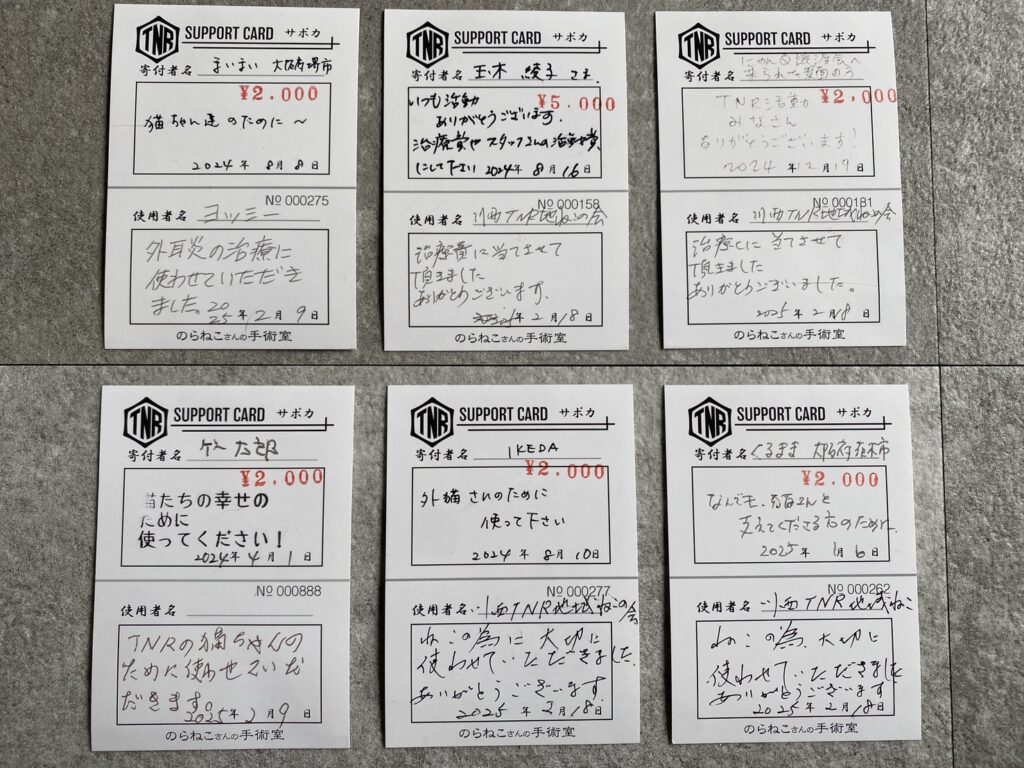 TNR SUPPORT CARD サポカ
寄付者名 まいまい 大阪府堺市
¥2.000
猫ちゃん達のために〜
2024年 8月 8日
No 000275
使用者名 ヨッミー
外耳炎の治療に
使わせていただき
ました。20
25年 2月 9日
のらねこさんの手術室
TNR SUPPORT CARD サポカ
寄付者名 玉木 綾子 さま
いつも活動 ¥5.000
ありがとうございます.
治療費や スタッフさんの活動費
にして下さい 2024年 8月 16日
No 000158
使用者名 川西TNR地域ねこの会
治療費に当てさせて
頂きました
ありがとうございます.
年 2月 18日
のらねこさんの手術室
TNR SUPPORT CARD サポカ
にゃんQ譲渡会へ
寄付者名 来られた
¥2,000
TNR活動
みなさん
ありがとうございます!
2024年 12月 19日
No 000181
使用者名 川西TNR地域ねこの会
治療に当てさせて
頂きました
ありがとうございました。
2025年 2月 18日
のらねこさんの手術室
TNR SUPPORT CARD サポカ
寄付者名 太郎
¥2.000
猫たちの幸せの
ために
使ってください!
2024年 4月 1日
No 000888
使用者名
TNRの猫ちゃんの
ために使わせていた
だきます。
2025年 2月 9日
のらねこさんの手術室
TNR SUPPORT CARD サポカ
寄付者名 IKEDA
¥2.000
外猫さんのために
使って下さい
2024年 8月 10日
No 000277
使用者名 川西TNR地域ねこの会
ねこの為に大切に
使わせていただきました.
ありがとうございます
2025年 2月 18日
のらねこさんの手術室
TNR SUPPORT CARD サポカ
寄付者名 くるまま 大阪府茨木市
¥2.000
なんでも、猫さんと
支えてくださる方のために
2025年 1月 6日
No 000262
使用者名 川西TNR地域ねこ
ねこの為、大切に
使わせていただきました
ありがとうございます
2025年 2月 18日
のらねこさんの手術室